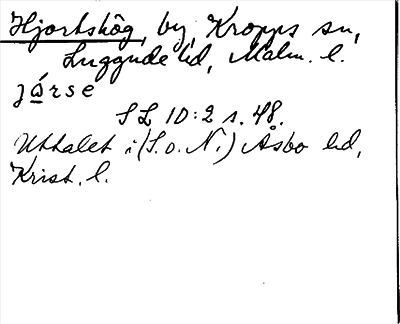 Hjortshög, by, Kropps sn,
Luggude hd, Malm. l.
járse
SL 10:2 s. 48.
Uttalet i (S. o. N.) Åsbo hd,
Krist. l.